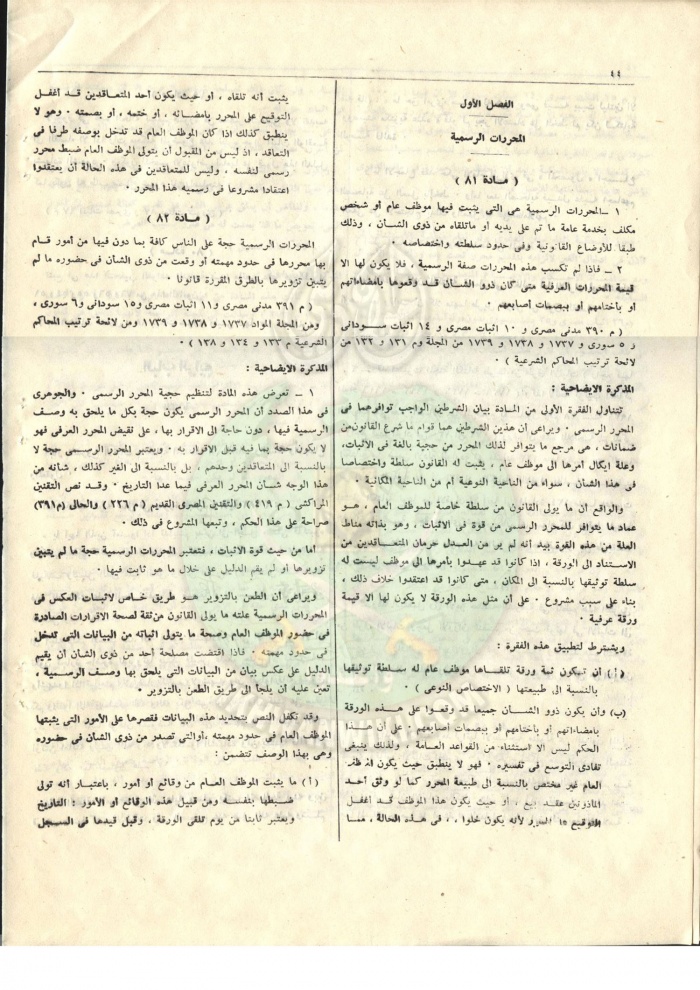 ٤٤
الفصل الأول
المحررات الرسمية
( مادة ٨١ )
١ ـ المحررات الرسمية هى التى يثبت فيها موظف عام أو شخص
مكلف بخدمة عامة ما تم على يديه أو ماتلقاه من ذوى الشأن ، وذلك
طبقا للأوضاع القانونية وفى حدود سلطته واختصاصه .
٢ ـ فاذا لم تكسب هذه المحررات صفة الرسمية ، فلا يكون لها الا
قيمة المحررات العرفية متى كان ذوو الشأن قد وقعوها بامضاءاتهم
أو بأختامهم أو ببصمات أصابعهم .
( م ٣٩٠ مدنى مصرى و ١٠ اثبات مصرى و ١٤ اثبات سودانى
و ٥ سورى و ١٧٣٧ و ١٧٣٨ و ١٧٣٩ من المجلة وم ١٣١ و ١٣٢ من
لائحة ترتيب المحاكم الشرعية ) .
المذكرة الايضاحية :
تتناول الفقرة الأولى من المادة بيان الشرطين الواجب توافرهما فى
المحرر الرسمى . ويراعى أن هذين الشرطين هما قوام ما شرع القانون من
ضمانات ، هى مرجع ما يتوافر لذلك المحرر من حجية بالغة فى الاثبات ،
وعلة ايكال أمرها الى موظف عام ، يثبت له القانون سلطة واختصاصا
فى هذا الشأن ، سواء من الناحية النوعية أم من الناحية المكانية .
والواقع أن ما يولى القانون من سلطة خاصة للموظف العام ، هو
عماد ما يتوافر للمحرر الرسمى من قوة فى الاثبات ، وهو بذاته مناط
العلة من هذه القوة بيد أنه لم ير من العدل حرمان المتعاقدين من
الاستناد الى الورقة ، اذا كانوا قد عهدوا بأمرها الى موظف ليست له
سلطة توثيقها بالنسبة الى المكان ، متى كانوا قد اعتقدوا خلاف ذلك ،
بناء على سبب مشروع . على أن مثل هذه الورقة لا يكون لها الا قيمة
ورقة عرفية .
ويشترط لتطبيق هذه الفقرة :
( أ ) أن تكون ثمة ورقة تلقاها موظف عام له سلطة توثيقها
بالنسبة الى طبيعتها ( الاختصاص النوعى ) .
(ب) وأن يكون ذوو الشأن جميعا قد وقعوا على هذه الورقة
بامضاءاتهم أو بأختامهم أو ببصمات أصابعهم . على أن هذا
الحكم ليس الا استثناء من القواعد العامة ، ولذلك ينبغى
تفادى التوسع فى تفسيره . فهو لا ينطبق حيث يكون الموظف
العام غير مختص بالنسبة الى طبيعة المحرر كما لو وثق أحد
المأذونين عقد بيع ، أو حيث يكون هذا الموظف قد أغفل
التوقيع المحرر لأنه يكون خلوا ، فى هذه الحالة ، مما
يثبت أنه تلقاه ، أو حيث يكون أحد المتعاقدين قد أغفل
التوقيع على المحرر بامضائه ، أو ختمه ، أو بصمته . وهو لا
ينطبق كذلك اذا كان الموظف العام قد تدخل بوصفه طرفا فى
التعاقد ، اذ ليس من المقبول أن يتولى الموظف العام ضبط محرر
رسمى لنفسه ، وليس للمتعاقدين فى هذه الحالة أن يعتقدوا
اعتقادا مشروعا فى رسميه هذا المحرر .
( مادة ٨٢ )
المحررات الرسمية حجة على الناس كافة بما دون فيها من أمور قام
بها محررها فى حدود مهمته أو وقعت من ذوى الشأن فى حضوره ما لم
يتبين تزويرها بالطرق المقررة قانونا .
( م ٣٩١ مدنى مصرى و١١ اثبات مصرى و١٥ سودانى و٦ سورى ،
وهن المجلة المواد ١٧٣٧ و ١٧٣٨ و ١٧٣٩ ومن لائحة ترتيب المحاكم
الشرعية م ١٣٣ و ١٣٤ و ١٣٨ ) .
المذكرة الايضاحية :
١ ـ تعرض هذه المادة لتنظيم حجية المحرر الرسمى . والجوهرى
فى هذا الصدد أن المحرر الرسمى يكون حجة بكل ما يلحق به وصف
الرسمية فيها ، دون حاجة الى الاقرار بها ، على نقيض المحرر العرفى فهو
لا يكون حجة بما فيه قبل الاقرار به . ويعتبر المحرر الرسمى حجة لا
بالنسبة الى المتعاقدين وحدهم ، بل بالنسبة الى الغير كذلك ، شأنه من
هذا الوجه شأن المحرر العرفى فيما عدا التاريخ . وقد نص التقنين
المراكشى ( م ٤١٩ ) والتقنين المصرى القديم ( م ٢٢٦ ) والحالى (م٣٩١)
صراحة على هذا الحكم ، وتبعها المشروع فى ذلك .
أما من حيث قوة الاثبات ، فتعتبر المحررات الرسمية حجة ما لم يتبين
تزويرها أو لم يقم الدليل على خلال ما هو ثابت فيها .
ويراعى أن الطعن بالتزوير هو طريق خاص لاثبات العكس فى
المحررات الرسمية علته ما يولى القانون من ثقة لصحة الاقرارات الصادرة
فى حضور الموظف العام وصحة ما يتولى اثباته من البيانات التى تدخل
فى حدود مهمته . فاذا اقتضت مصلحة أحد من ذوى الشأن أن يقيم
الدليل على عكس بيان من البيانات التى يلحق بها وصف الرسمية ،
تعين عليه أن يلجأ الى طريق الطعن بالتزوير .
وقد تكفل النص بتحديد هذه البيانات فقصرها على الأمور التى يثبتها
الموظف العام فى حدود مهمته ،أوالتى تصدر من ذوى الشأن فى حضوره
وهى بهذا الوصف تتضمن :
( أ ) ما يثبت الموظف العام من وقائع أو أمور ، باعتبار أنه تولى
ضبطها بنفسه ومن قبيل هذه الوقائع أو الأمور : التاريخ
ويعتبر ثابتا من يوم تلقى الورقة ، وقبل قيدها فى السجل